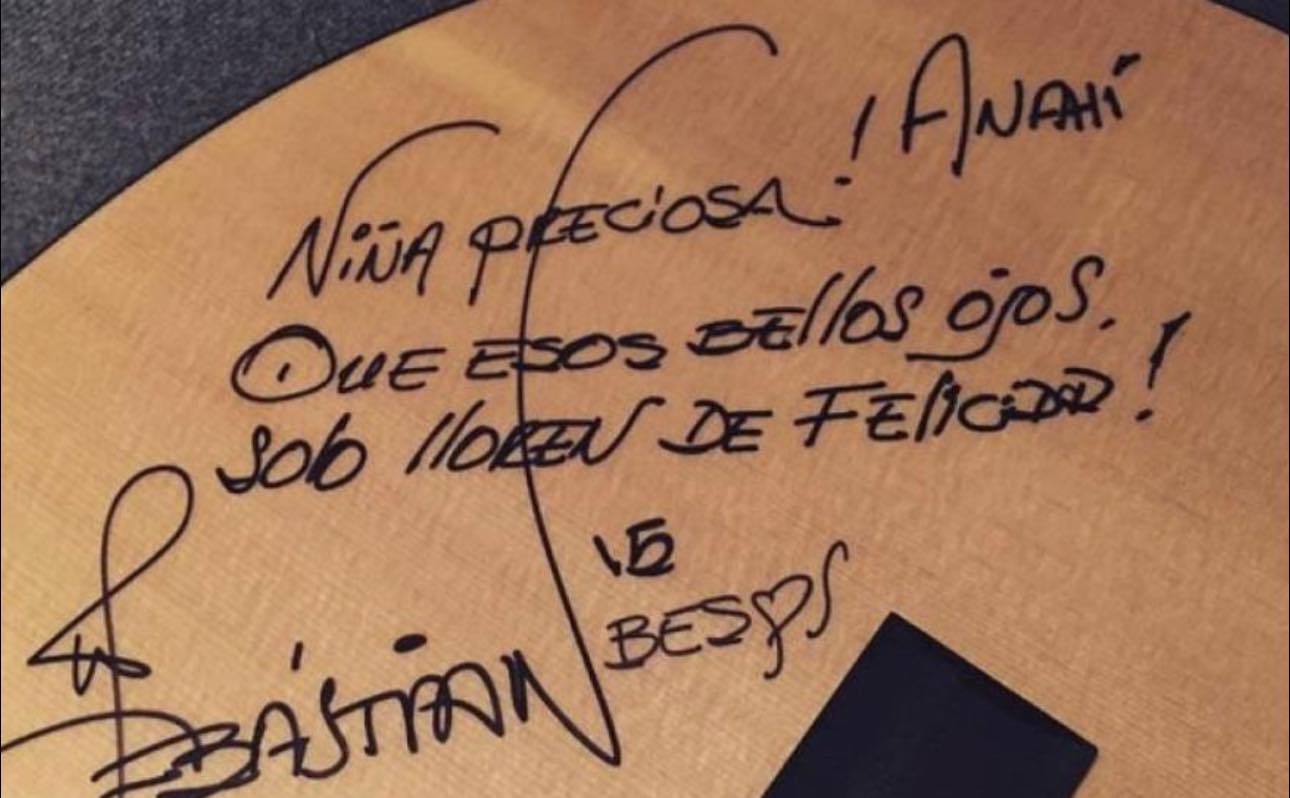 Niña preciosa! Anahí
Que esos bellos ojos.
solo lloren de felicidad!
15
Besos
Sebástian